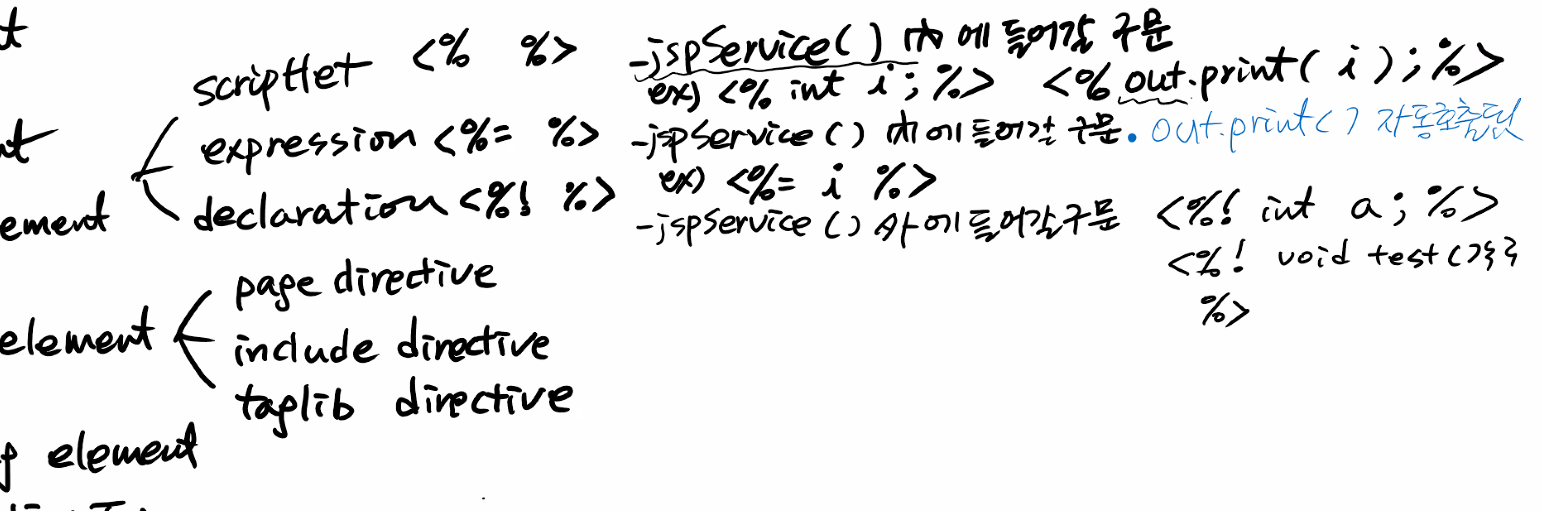 scriptlet <% %> -jspService() 內에 들어갈 구문
ex) <% int i; %> <% out.print( i ); %>
expression <%= %> -jspService () 內에 들어갈 구문. out.print() 자동호출됨
ex) <%= i %>
declaration <%! %> -jspService () 外에 들어갈 구문 <%! int a; %>
<%! void test(){}
%>
ement
page directive
element
include directive
taglib directive
element